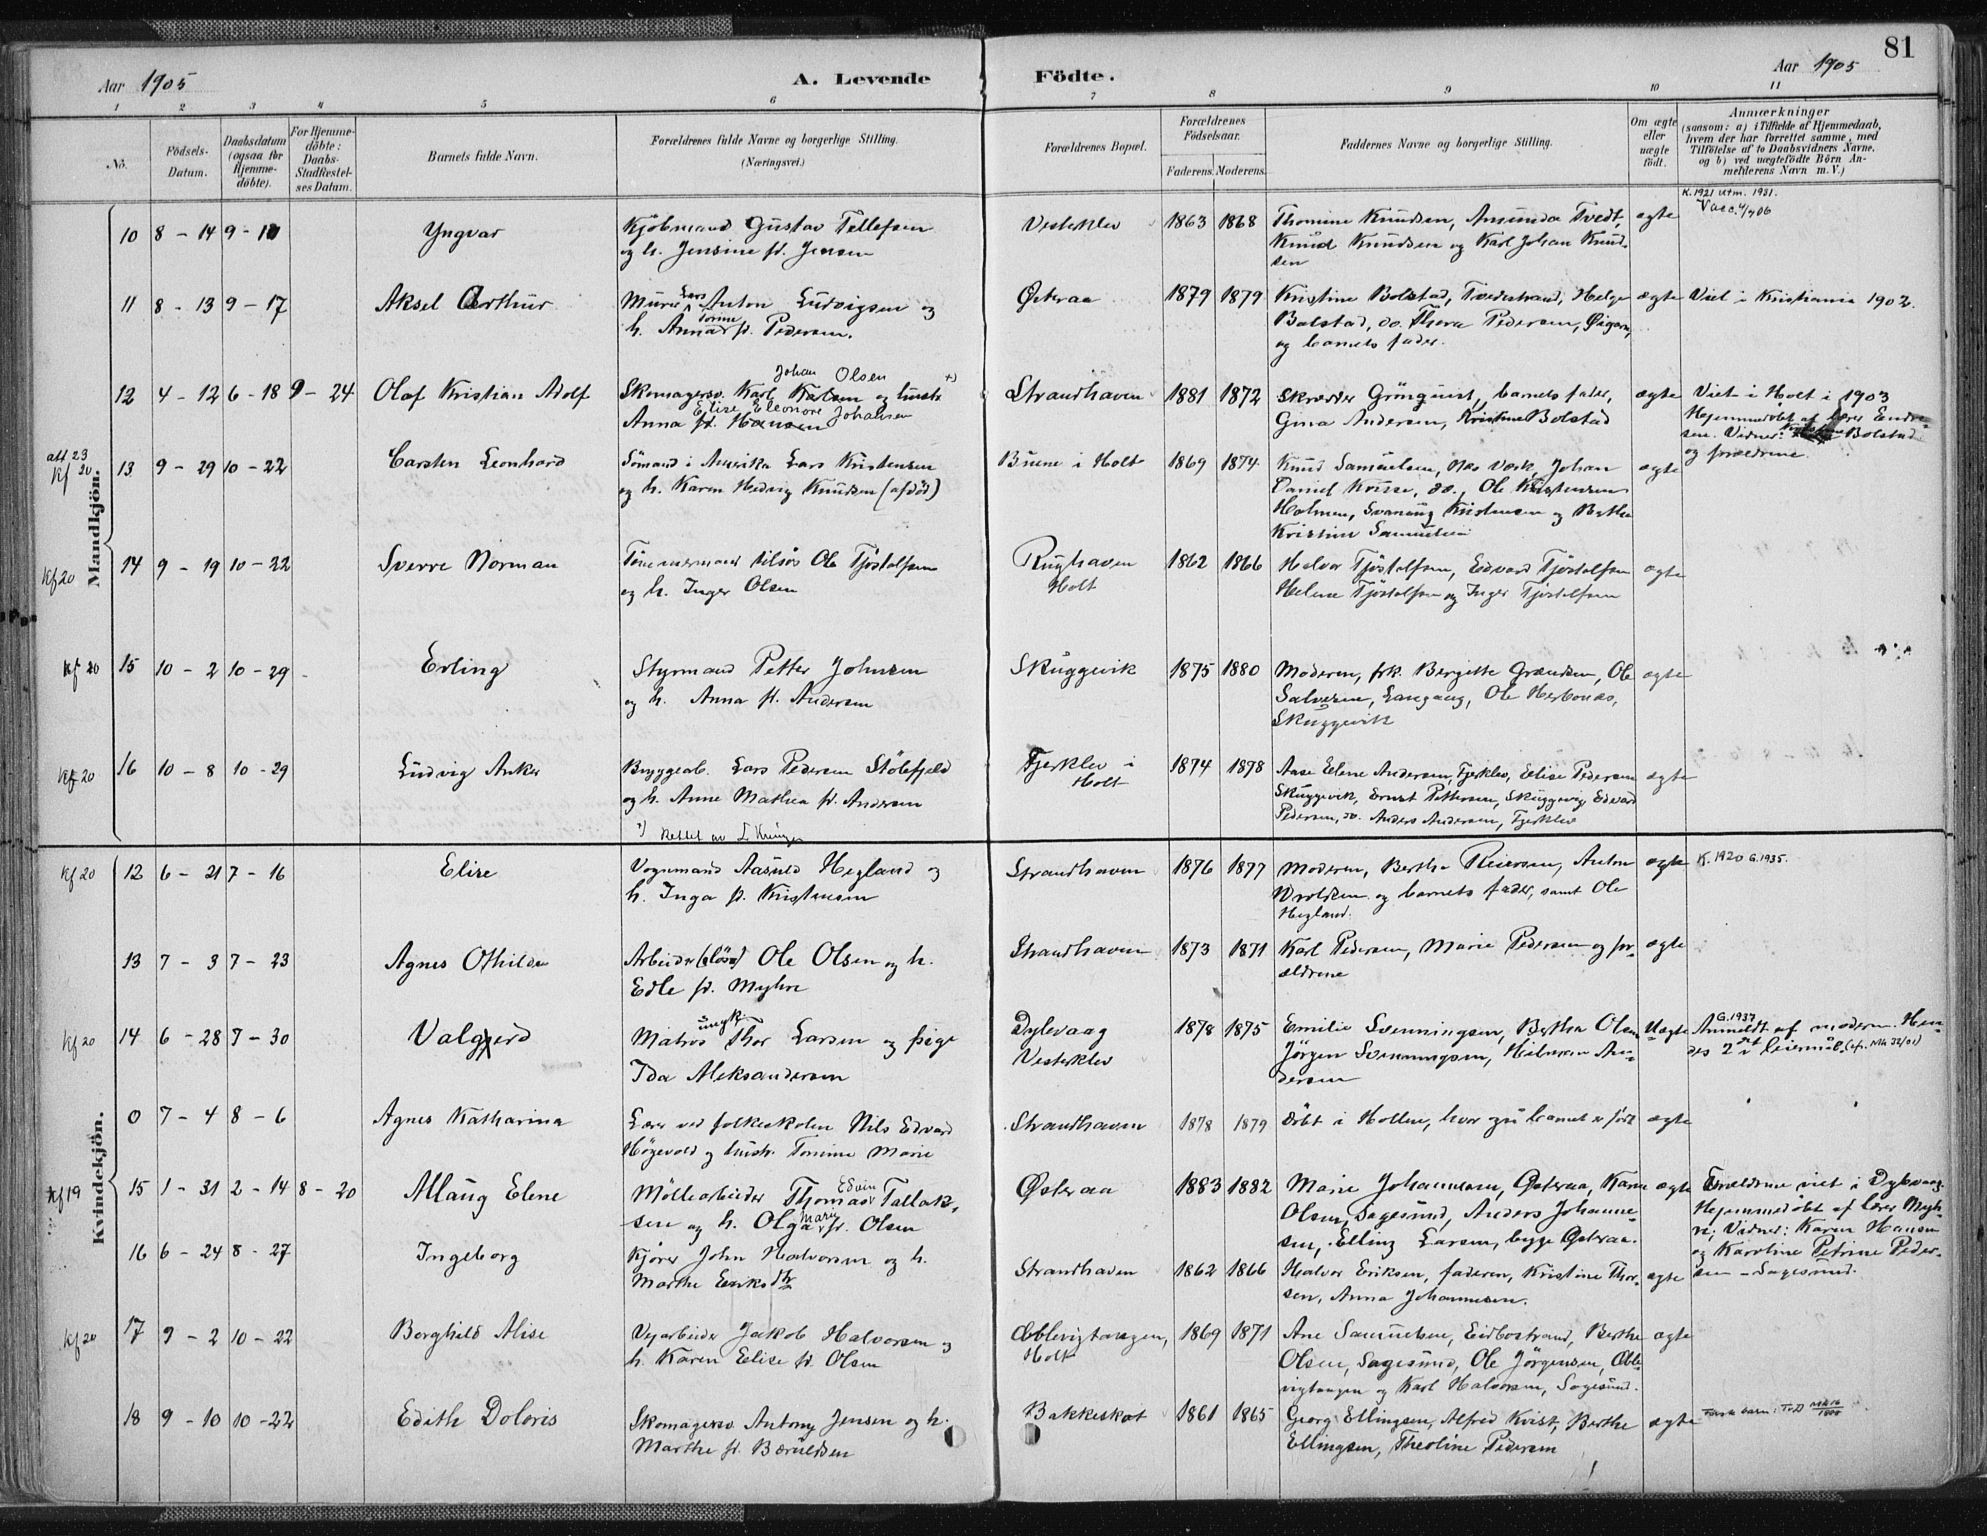 81
Aar 1905 A. Levende Födte. Aar 1905
1 2 3 4 5 6 7 8 9 10 11
No.
Födsels-Datum.
Daabsdatum (ogsaa for Hjemmedöbte).
For Hjemmedöbte: Daabs-Stadfæstelses Datum.
Barnets fulde Navn.
Forældrenes fulde Navne og borgerlige Stilling. (Næringsvei.)
Forældrenes Bopæl.
Forældrenes Födselsaar.
Faderens. Moderens.
Faddernes Navne og borgerlige Stilling.
Om ægte eller uægte födt.
Anmærkninger
(saasom: a) i Tilfælde af Hjemmedaab,
hvem der har forrettet samme, med
Tilföielse af to Daabsvidners Navne,
og b) ved uægtefödte Börn Anmelderens Navn m. V.)
Mandkjön.
10 8 - 14 9 - 10 Yngvar
Kjöbmand Gustav Tellefsen
og h. Jensine f. Jensen
Vesterklev 1863 1868
Thomine Knudsen, Amunda Tvedt,
Knud Knudsen og Karl Johan Knud-
sen
ægte
K. 1921 utm. 1931.
11 8 - 13 9 - 17 Aksel Arthur
Murer Lars Anton Ludvigsen og
h. Anna Torine f. Pedersen.
Østeraa 1879 1879
Kristine Bolstad, Tvedestrand, Helge
Bolstad, do. Thora Pedersen,
og barnets fader.
ægte
Viet i Kristiania 1902.
12 4 - 12 6 - 18 9 - 24 Olaf Kristian Adolf
Skomagersv. Karl Johan Olsen og hustr. +)
Anna Elise Eleonore Johansen f. Hansen
Strandhaven 1881 1872
Skrædder Grönquist, barnets fader,
Gina Andersen, Kristine Bolstad
ægte
Viet i Holt i 1903
Hjemmedöbt af lærer Endre-
sen. Vidner: Bolstad
og forældrene.
att 23
Kf 20.
13 9 - 29 10 - 22 Carsten Leonhard
Sömand i Amerika Lars Kristensen
og h. Karen Hedvig Knudsen (afdöd)
i Holt 1869 1874
Knud Samuelsen, Næs Værk, Johan
Daniel Kruse, do., Ole Kristensen
Holmen, Kristensen og Berthe
Kristine Samuelsen
ægte
Kf 20
14 9 - 19 10 - 22 Sverre Norman
Tömmermand tilsös Ole Tjöstolfsen
og h. Inger Olsen
Rughaven
Holt 1862 1866
Halvor Tjöstolfsen, Edvard Tjöstolfsen
Helene Tjöstolfsen og Inger Tjöstolfsen
ægte
Kf 20
15 10 - 2 10 - 29 Erling
Styrmand Petter Johnsen
og h. Anna f. Andersen
Skuggevik 1875 1880
Moderen, frk. Bergitte Grændsen, Ole
Salvesen, Langang, Ole Herbonæs,
Skuggevik
ægte
Kf 20
16 10 - 8 10 - 29 Ludvig Anker
Bryggearb. Lars Pedersen Stölefjeld
og h. Anne Mathea f. Andersen
Fjerklev i
Holt 1874 1878
Aase Elene Andersen, Fjerklev, Elise Pedersen
Skuggevik, Ernst Pettersen, Skuggevig Edvard
Pedersen, do. Anders Andersen, Fjerklev
ægte
+) Rettet av
Kvindekjön.
Kf 20
12 6 - 21 7 - 16 Elise
Vognmand Aasuld Hegland og
h. Inga f. Kristensen
Strandhaven 1876 1877
Moderen, Berthe Reiersen, Anton
og barnets fader, samt Ole
Hegland.
ægte
K. 1920 G. 1935.
13 7 - 3 7 - 23 Agnes Othilde
Arbeider (lös) Ole Olsen og h.
Edle f. Myhre
Strandhaven 1873 1871
Karl Pedersen, Marie Pedersen og for-
ældrene
ægte
Kf 20
14 6 - 28 7 - 30 Valgerd
Matros ungk. Thor Larsen og pige
Ida Aleksandersen
Dybvaag
Vesterklev 1878 1875
Emilie Svenningsen, Bertha Olsen
Jörgen Svenningsen, Hilmann An-
dersen
Uægte
G. 1937
Anmeldt af moderen. Hen-
des 2det leiermål.
0 7 - 4 8 - 6 Agnes Katharina
Lærer ved folkeskolen Nils Edvard
Högevold og hustr. Tomine Marie
Strandhaven 1878 1879
Döbt i Hollen, hvor også barnet er födt
ægte
Kf 19
15 1 - 31 2 - 14 8 - 20 Allaug Elene
Möllearbeider Thomas Edvin Tallak-
sen og h. Olga Marie f. Olsen
Østeraa 1883 1882
Marie Johannesen, Østeraa, Karen
Olsen, Sagesund, Anders Johanne-
sen, Elling Larsen, begge Østeraa.
ægte
Forældrene viet i Dybvaag.
Hjemmedöbt af lærer Myh-
re; Vidner: Karen Hansen
og Karoline Petrine Peder-
sen - Sagesund.
16 6 - 24 8 - 27 Ingeborg
Kjörer John Halvorsen og h.
Marthe Eriksdtr
Strandhaven 1862 1866
Halvor Eriksen, faderen, Kristine Thor-
sen, Anna Johannesen.
ægte
Kf 20
17 9 - 2 10 - 22 Borghild Alise
Veiarbeider Jakob Halvorsen og
h. Karen Elise f. Olsen
Øblevigtangen,
Holt 1869 1871
Ane Samuelsen, Eidbostrand, Berthe
Olsen, Sagesund, Ole Jörgensen, Øble-
vigtangen og Karl Halvorsen, Sagesund.
ægte
18 9 - 10 10 - 22 Edith Doloris
Skomagersv. Antony Jensen og h.
Marthe f. Bæruldsen
Bakkeskot 1861 1865
Georg Ellingsen, Alfred Kvist, Berthe
Ellingsen, Theoline Pedersen
ægte